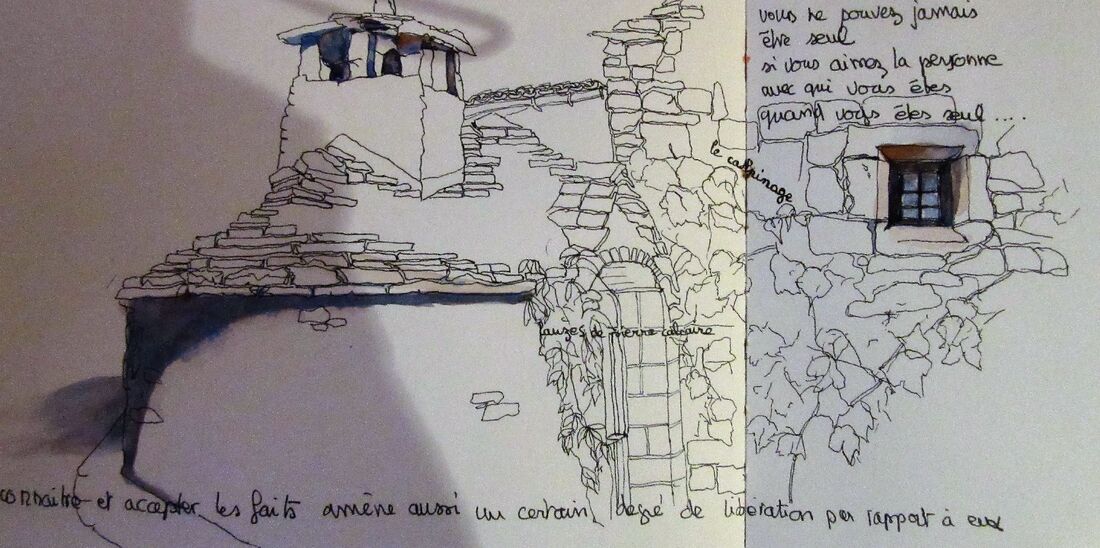 vous ne pouvez jamais
être seul
si vous aimez la personne
avec qui vous êtes
quand vous êtes seul ....
le calpinage
lauzes de pierre calcaire
connaitre et accepter les faits amène aussi un certain degré de libération par rapport à eux